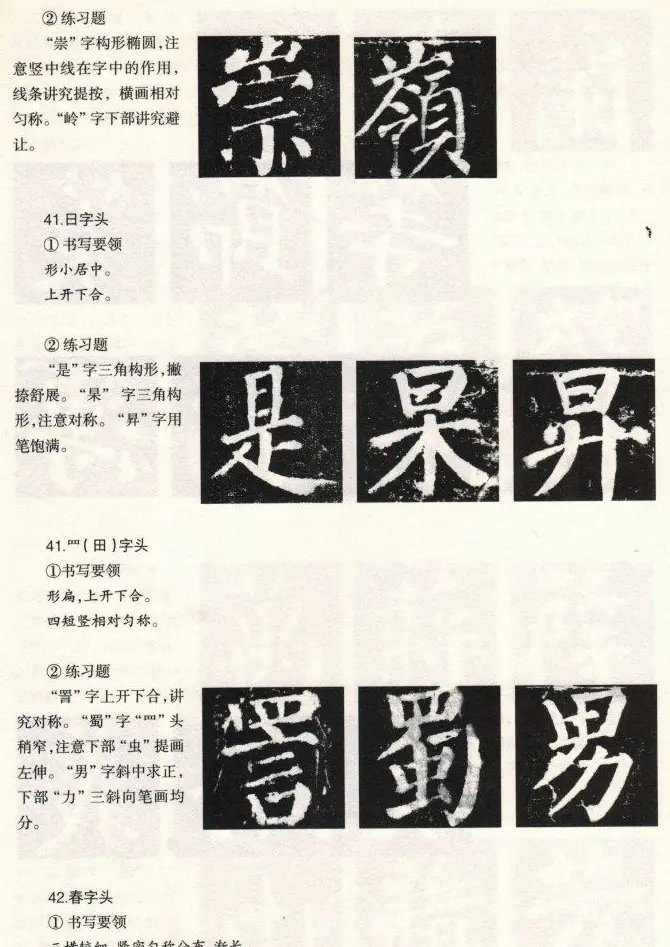 ②练习题
“崇”字构形椭圆,注
意竖中线在字中的作用,
线条讲究提按,横画相对
匀称。“岭”字下部讲究避
让。
崇 嶺
41.日字头
①书写要领
形小居中。
上开下合。
②练习题
“是”字三角构形,撇
捺舒展。“杲”字三角构
形,注意对称。“昇”字用
笔饱满。
是 杲 昇
41.罒(田)字头
①书写要领
形扁,上开下合。
四短竖相对匀称。
②练习题
“詈”字上开下合,讲
究对称。“蜀”字“罒”头
稍窄,注意下部“虫”提画
左伸。“男”字斜中求正,
下部“力”三斜向笔画均
分。
詈 蜀 男
42.春字头
①书写要领
三横较细,紧密匀称分布,渐长